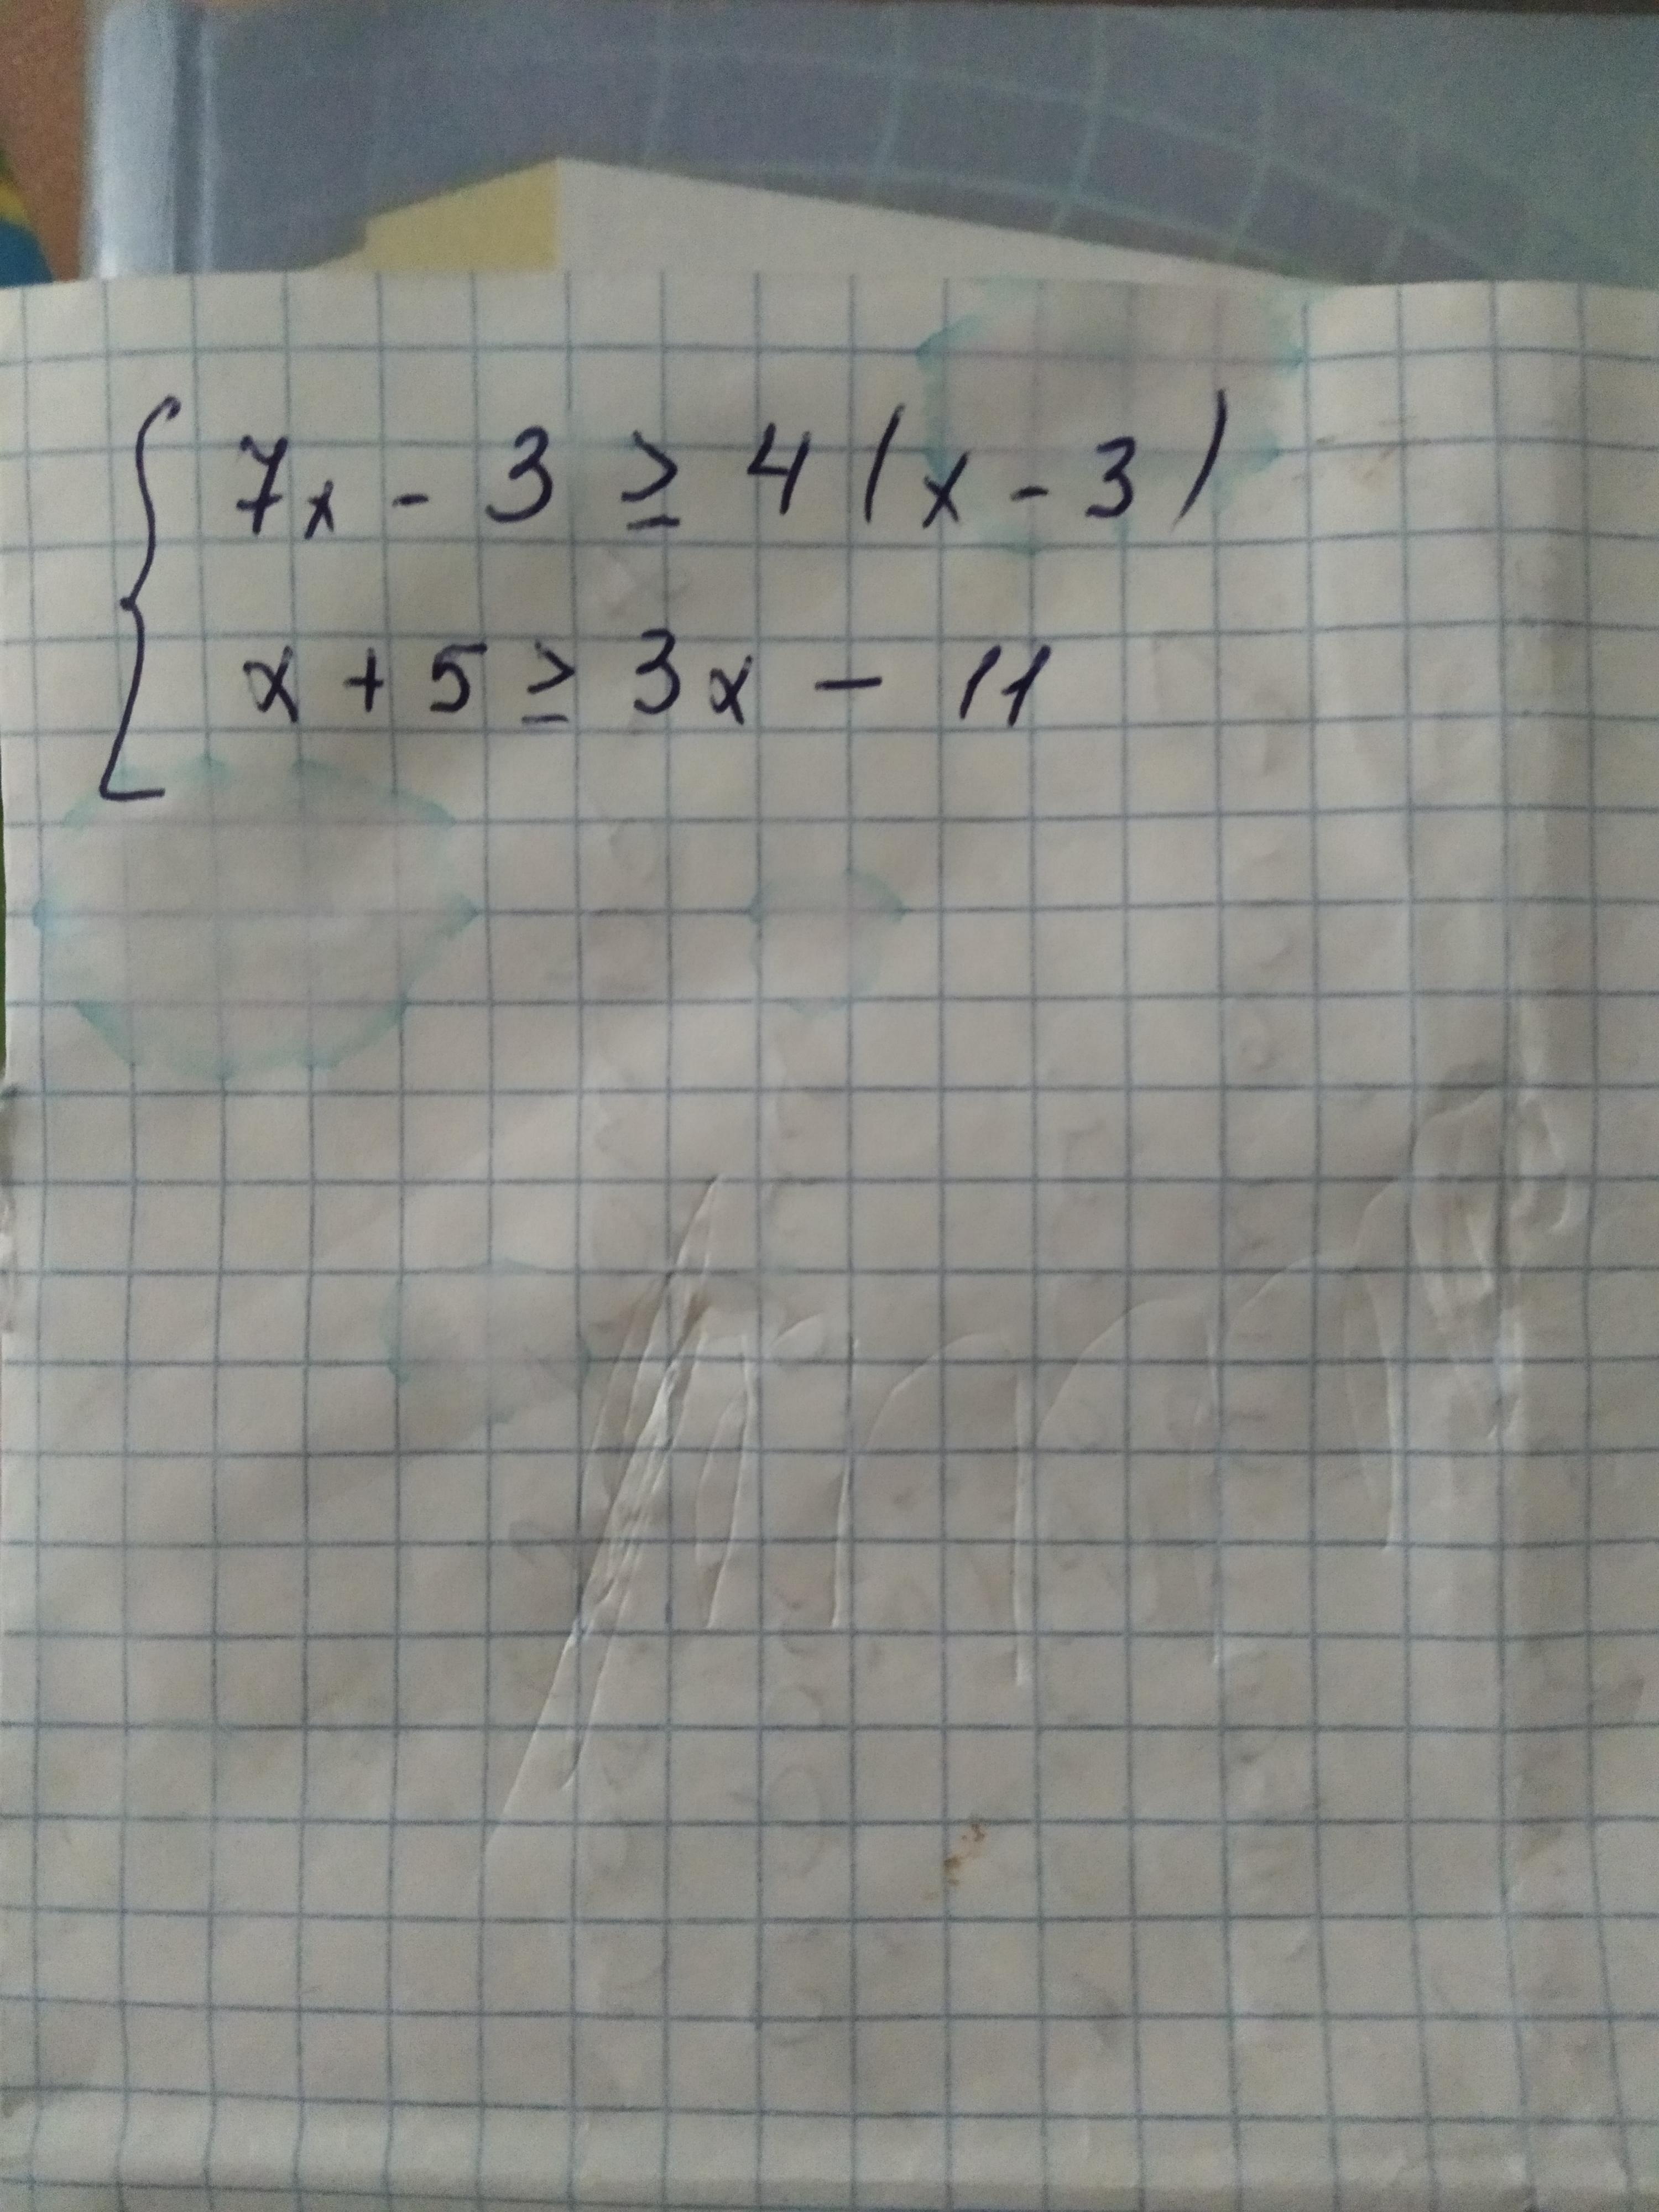 7x - 3 ≥ 4(x - 3)
x + 5 ≥ 3x - 11